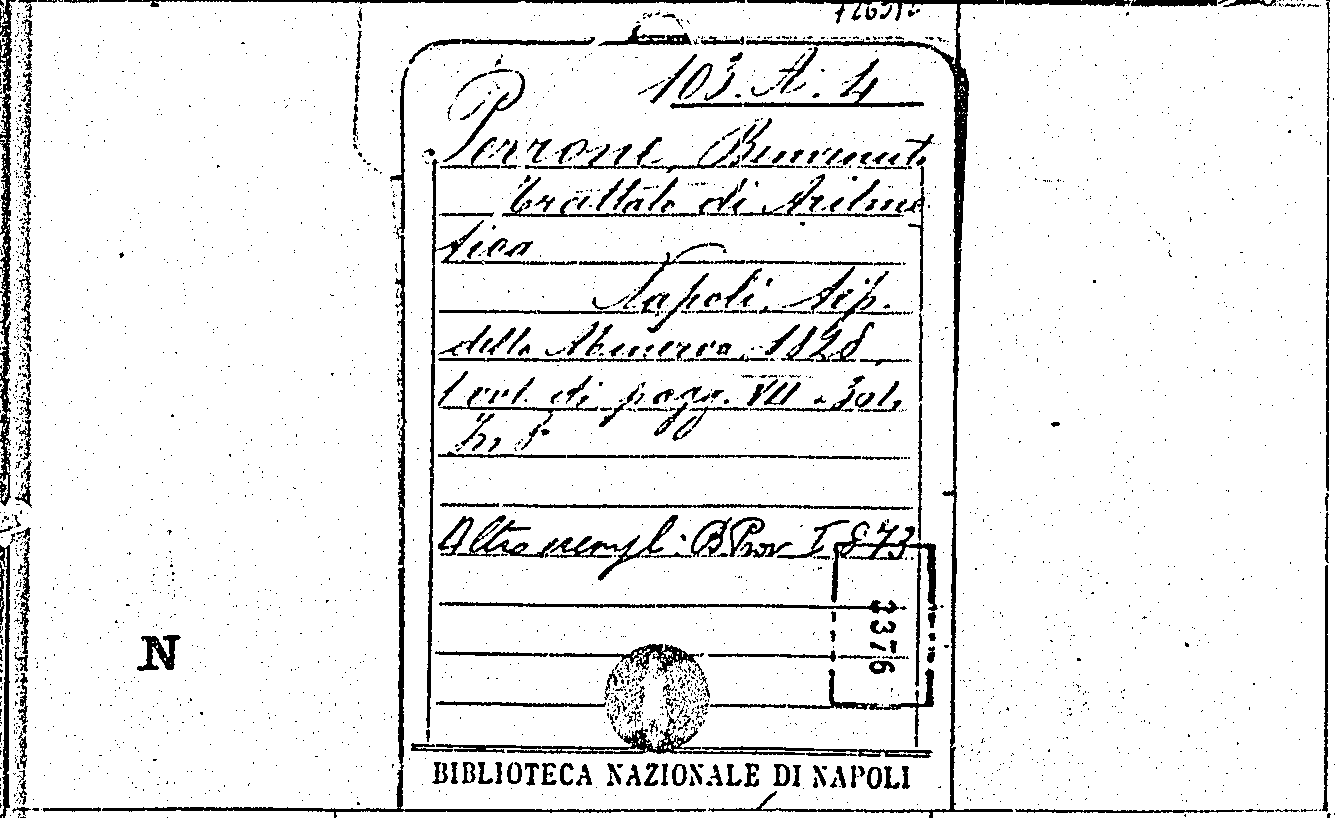 P
103. A. 4
Perrone, Benvenuto
Trattato di Aritme
tica
Napoli, Tip.
della Minerva, 1828,
1 vol. di pagg. VII - 301,
In 8°
Altro esempl: B Prov I 873
3376
N
BIBLIOTECA NAZIONALE DI NAPOLI